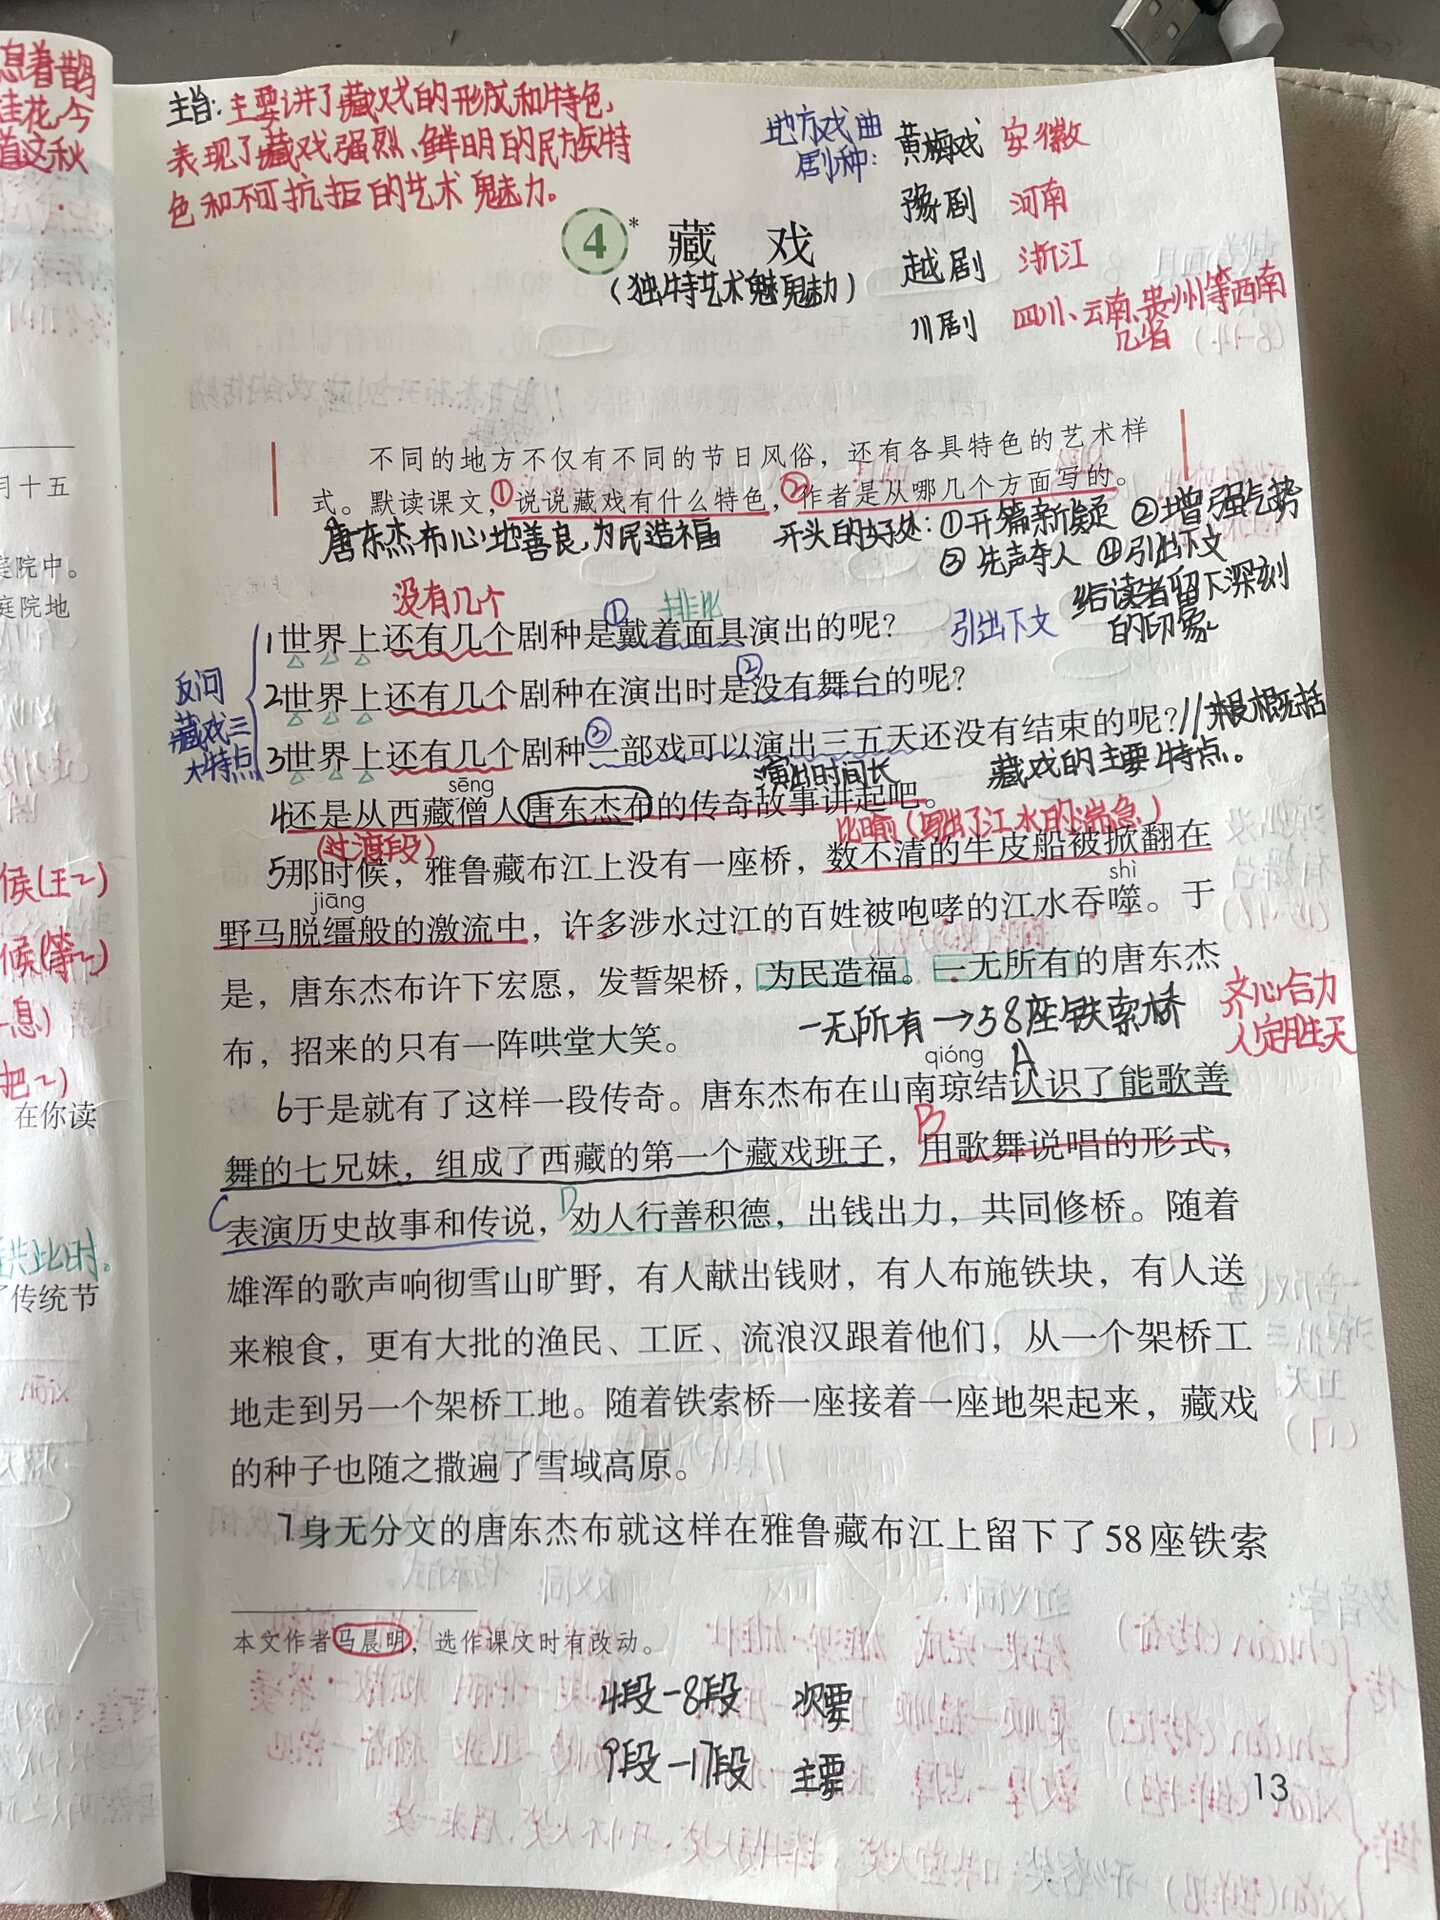 息着鹊
桂花,今
道这秋
月十五
庭院中。
庭院地
候(王~)
候(等~)
息)
把~)
在你读
共此时。
了传统节
主旨:主要讲了藏戏的形成和特色,
表现了藏戏强烈、鲜明的民族特
色和不可抗拒的艺术魅力。
地方戏曲
剧种:
黄梅戏 安徽
豫剧 河南
越剧 浙江
川剧 四川、云南、贵州等西南
几省
4* 藏 戏
(独特艺术魅力)
不同的地方不仅有不同的节日风俗,还有各具特色的艺术样
式。默读课文,①说说藏戏有什么特色,②作者是从哪几个方面写的。
唐东杰布心地善良,为民造福
开头的好处:①开篇新疑 ②增强气势
③先声夺人 ④引出下文
给读者留下深刻
的印象
没有几个
① 排比
1世界上还有几个剧种是戴着面具演出的呢?
引出下文
反问
藏戏三
大特点
②
2世界上还有几个剧种在演出时是没有舞台的呢?
3世界上还有几个剧种③一部戏可以演出三五天还没有结束的呢?//
概括
藏戏的主要特点。
演出时间长
sēng
4还是从西藏僧人唐东杰布的传奇故事讲起吧。
(过渡段)
比喻(写出了江水的湍急)
5那时候,雅鲁藏布江上没有一座桥,数不清的牛皮船被掀翻在
jiāng shì
野马脱缰般的激流中,许多涉水过江的百姓被咆哮的江水吞噬。于
是,唐东杰布许下宏愿,发誓架桥,为民造福。一无所有的唐东杰
布,招来的只有一阵哄堂大笑。
一无所有→58座铁索桥
齐心合力
人定胜天
qióng A
6于是就有了这样一段传奇。唐东杰布在山南琼结认识了能歌善
B
舞的七兄妹,组成了西藏的第一个藏戏班子,用歌舞说唱的形式,
C D
表演历史故事和传说,劝人行善积德,出钱出力,共同修桥。随着
雄浑的歌声响彻雪山旷野,有人献出钱财,有人布施铁块,有人送
来粮食,更有大批的渔民、工匠、流浪汉跟着他们,从一个架桥工
地走到另一个架桥工地。随着铁索桥一座接着一座地架起来,藏戏
的种子也随之撒遍了雪域高原。
7身无分文的唐东杰布就这样在雅鲁藏布江上留下了58座铁索
本文作者马晨明,选作课文时有改动。
4段—8段 次要
9段—17段 主要
13